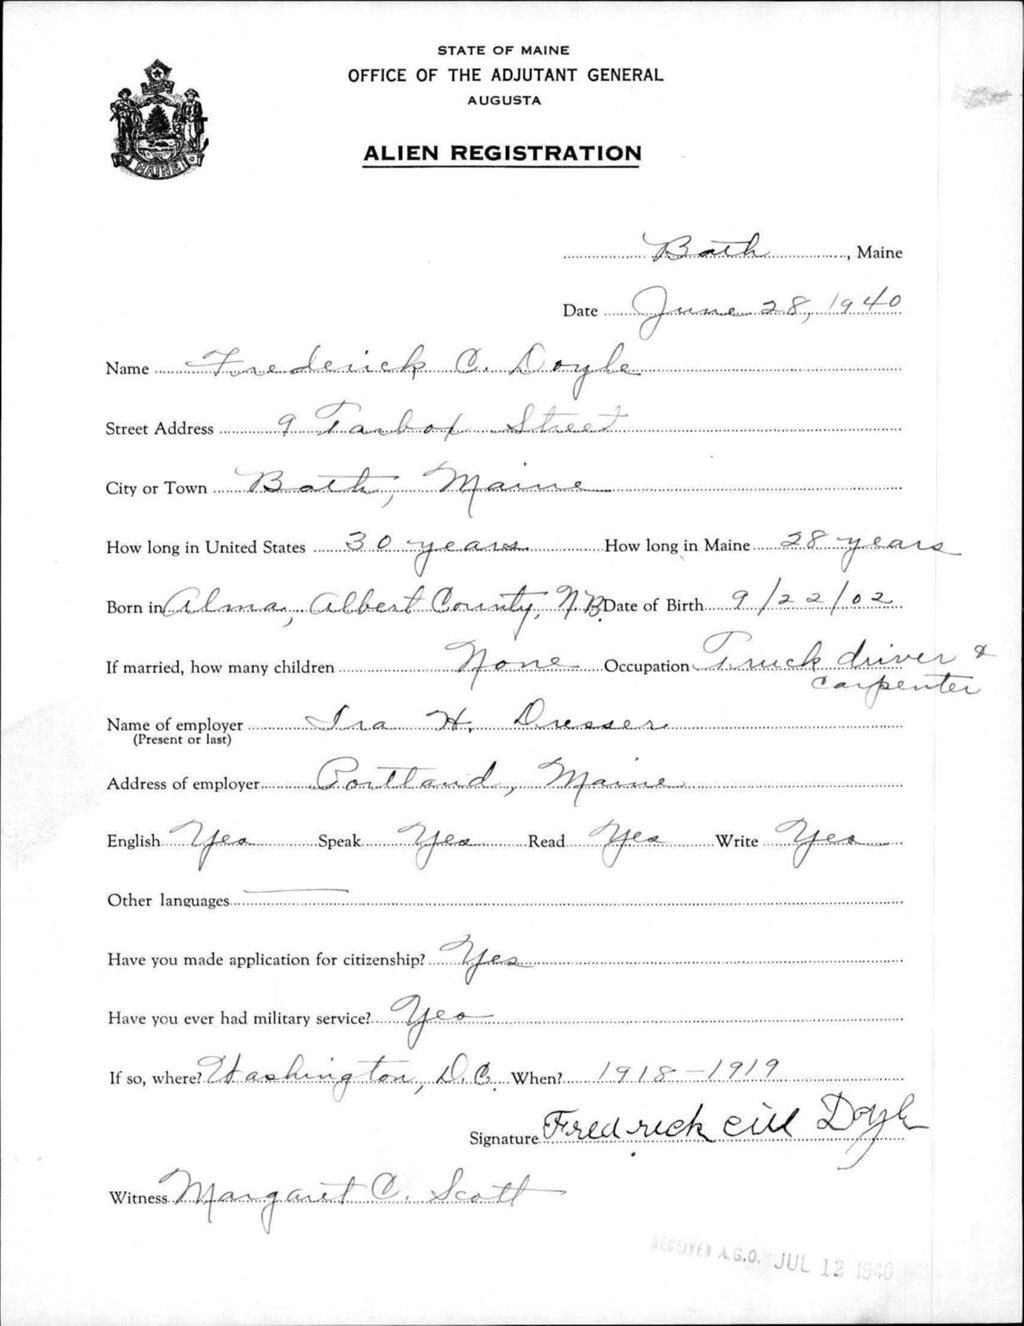 STATE OF MAINE
OFFICE OF THE ADJUTANT GENERAL
AUGUSTA
ALIEN REGISTRATION
MAINE
Bath, Maine
Date June 28, 1940
Name Frederick C. Doyle
Street Address 9 Tarbox Street
City or Town Bath, Maine
How long in United States 30 years How long in Maine 28 years
Born in Alma, Albert County, N.B. Date of Birth 9/22/02
If married, how many children None Occupation Truck driver &
carpenter
Name of employer Ira H. Dresser
(Present or last)
Address of employer Portland, Maine
English Yes Speak Yes Read Yes Write Yes
Other languages
Have you made application for citizenship? Yes
Have you ever had military service? Yes
If so, where? Washington, D.C. When? 1918-1919
Signature Fredrick Doyle
Witness Margaret C. Scott
RECEIVED A.G.O. JUL 12 1940